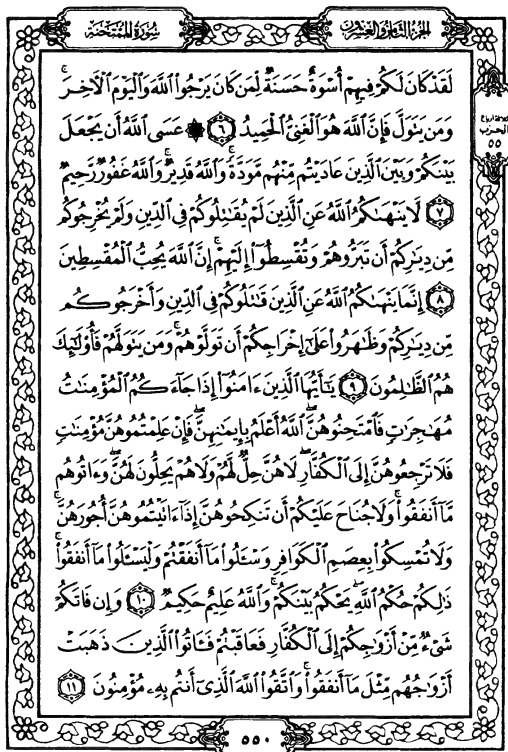 الجزء الثامن والعشرون
سورة الممتحنة
لَقَدْ كَانَ لَكُمْ فِيهِمْ أُسْوَةٌ حَسَنَةٌ لِّمَن كَانَ يَرْجُوا۟ ٱللَّهَ وَٱلْيَوْمَ ٱلْأَخِرَ ۚ
وَمَن يَتَوَلَّ فَإِنَّ ٱللَّهَ هُوَ ٱلْغَنِىُّ ٱلْحَمِيدُ ٦ ۞ عَسَى ٱللَّهُ أَن يَجْعَلَ
بَيْنَكُمْ وَبَيْنَ ٱلَّذِينَ عَادَيْتُم مِّنْهُم مَّوَدَّةً ۚ وَٱللَّهُ قَدِيرٌ ۚ وَٱللَّهُ غَفُورٌ رَّحِيمٌ
٧ لَّا يَنْهَىٰكُمُ ٱللَّهُ عَنِ ٱلَّذِينَ لَمْ يُقَٰتِلُوكُمْ فِى ٱلدِّينِ وَلَمْ يُخْرِجُوكُم
مِّن دِيَٰرِكُمْ أَن تَبَرُّوهُمْ وَتُقْسِطُوٓا۟ إِلَيْهِمْ ۚ إِنَّ ٱللَّهَ يُحِبُّ ٱلْمُقْسِطِينَ
٨ إِنَّمَا يَنْهَىٰكُمُ ٱللَّهُ عَنِ ٱلَّذِينَ قَٰتَلُوكُمْ فِى ٱلدِّينِ وَأَخْرَجُوكُم
مِّن دِيَٰرِكُمْ وَظَٰهَرُوا۟ عَلَىٰٓ إِخْرَاجِكُمْ أَن تَوَلَّوْهُمْ ۚ وَمَن يَتَوَلَّهُمْ فَأُو۟لَٰٓئِكَ
هُمُ ٱلظَّٰلِمُونَ ٩ يَٰٓأَيُّهَا ٱلَّذِينَ ءَامَنُوٓا۟ إِذَا جَآءَكُمُ ٱلْمُؤْمِنَٰتُ
مُهَٰجِرَٰتٍ فَٱمْتَحِنُوهُنَّ ۖ ٱللَّهُ أَعْلَمُ بِإِيمَٰنِهِنَّ ۖ فَإِنْ عَلِمْتُمُوهُنَّ مُؤْمِنَٰتٍ
فَلَا تَرْجِعُوهُنَّ إِلَى ٱلْكُفَّارِ ۖ لَا هُنَّ حِلٌّ لَّهُمْ وَلَا هُمْ يَحِلُّونَ لَهُنَّ ۖ وَءَاتُوهُم
مَّآ أَنفَقُوا۟ ۚ وَلَا جُنَاحَ عَلَيْكُمْ أَن تَنكِحُوهُنَّ إِذَآ ءَاتَيْتُمُوهُنَّ أُجُورَهُنَّ ۚ
وَلَا تُمْسِكُوا۟ بِعِصَمِ ٱلْكَوَافِرِ وَسْـَٔلُوا۟ مَآ أَنفَقْتُمْ وَلْيَسْـَٔلُوا۟ مَآ أَنفَقُوا۟ ۚ
ذَٰلِكُمْ حُكْمُ ٱللَّهِ ۖ يَحْكُمُ بَيْنَكُمْ ۚ وَٱللَّهُ عَلِيمٌ حَكِيمٌ ١٠ وَإِن فَاتَكُمْ
شَىْءٌ مِّنْ أَزْوَٰجِكُمْ إِلَى ٱلْكُفَّارِ فَعَاقَبْتُمْ فَـَٔاتُوا۟ ٱلَّذِينَ ذَهَبَتْ
أَزْوَٰجُهُم مِّثْلَ مَآ أَنفَقُوا۟ ۚ وَٱتَّقُوا۟ ٱللَّهَ ٱلَّذِىٓ أَنتُم بِهِۦ مُؤْمِنُونَ ١١
الحزب
٥٥
٥٥٠